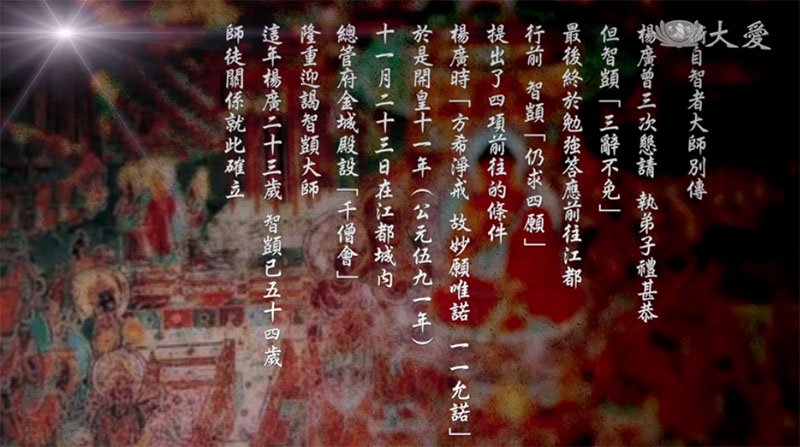 自智者大師別傳
楊廣曾三次懇請 執弟子禮甚恭
但智顗「三辭不免」
最後終於勉強答應前往江都
行前 智顗「仍求四願」
提出了四項前往的條件
楊廣時「方希淨戒 故妙願唯諾 一一允諾」
於是開皇十一年（公元伍九一年）
十一月二十三日在江都城內
總管府金城殿設「千僧會」
隆重迎謁智顗大師
這年楊廣二十三歲 智顗已五十四歲
師徒關係就此確立
大愛